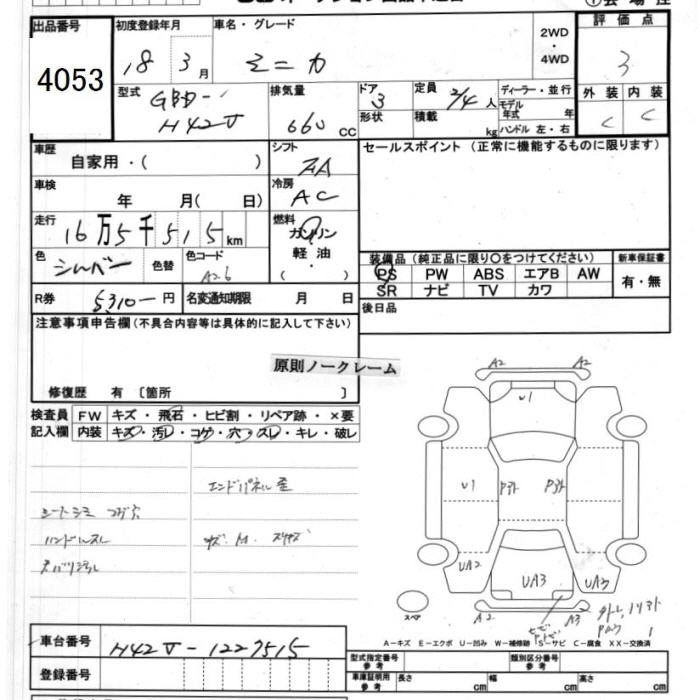 出品番号
4053
初度登録年月
18 3月
車名・グレード
ミニカ
2WD
・
4WD
評価点
3
外装 内装
C C
型式
GBD-
H42V
排気量
660 cc
ドア
3
形状
定員
2/4 人
積載
kg
ディーラー・並行
モデル年式 年
ハンドル 左・右
車歴
自家用・( )
シフト
FA
セールスポイント (正常に機能するものに限ります)
車検
年 月( 日)
冷房
AC
走行
16万5千515km
燃料
ガソリン
軽油・
( )
色
シルバー
色替
色コード
A26
装備品 (純正品に限り〇をつけてください)
新車保証書
PS PW ABS エアB AW
SR ナビ TV カワ
有・無
R券
5310- 円
名変通知期限 月 日
後日品
注意事項申告欄 (不具合内容等は具体的に記入して下さい)
原則ノークレーム
修復歴 有 〔箇所 〕
検査員
記入欄
FW キズ・飛石・ヒビ割・リペア跡・×要
内装 キズ・汚レ・コゲ・穴・スレ・キレ・破レ
エンドパネル歪
シートシミ コゲ穴
ハンドルスレ
A2 A2
U1
U1
UA2
UA3
UA3
A2 A3
スペア
A-キズ E-エクボ U-凹み W-補修跡 S-サビ C-腐食 XX-交換済
車台番号
H42V-1227515
登録番号
型式指定番号
参考
類別区分番号
参考
車庫証明用
参考
長さ cm 幅 cm 高さ cm